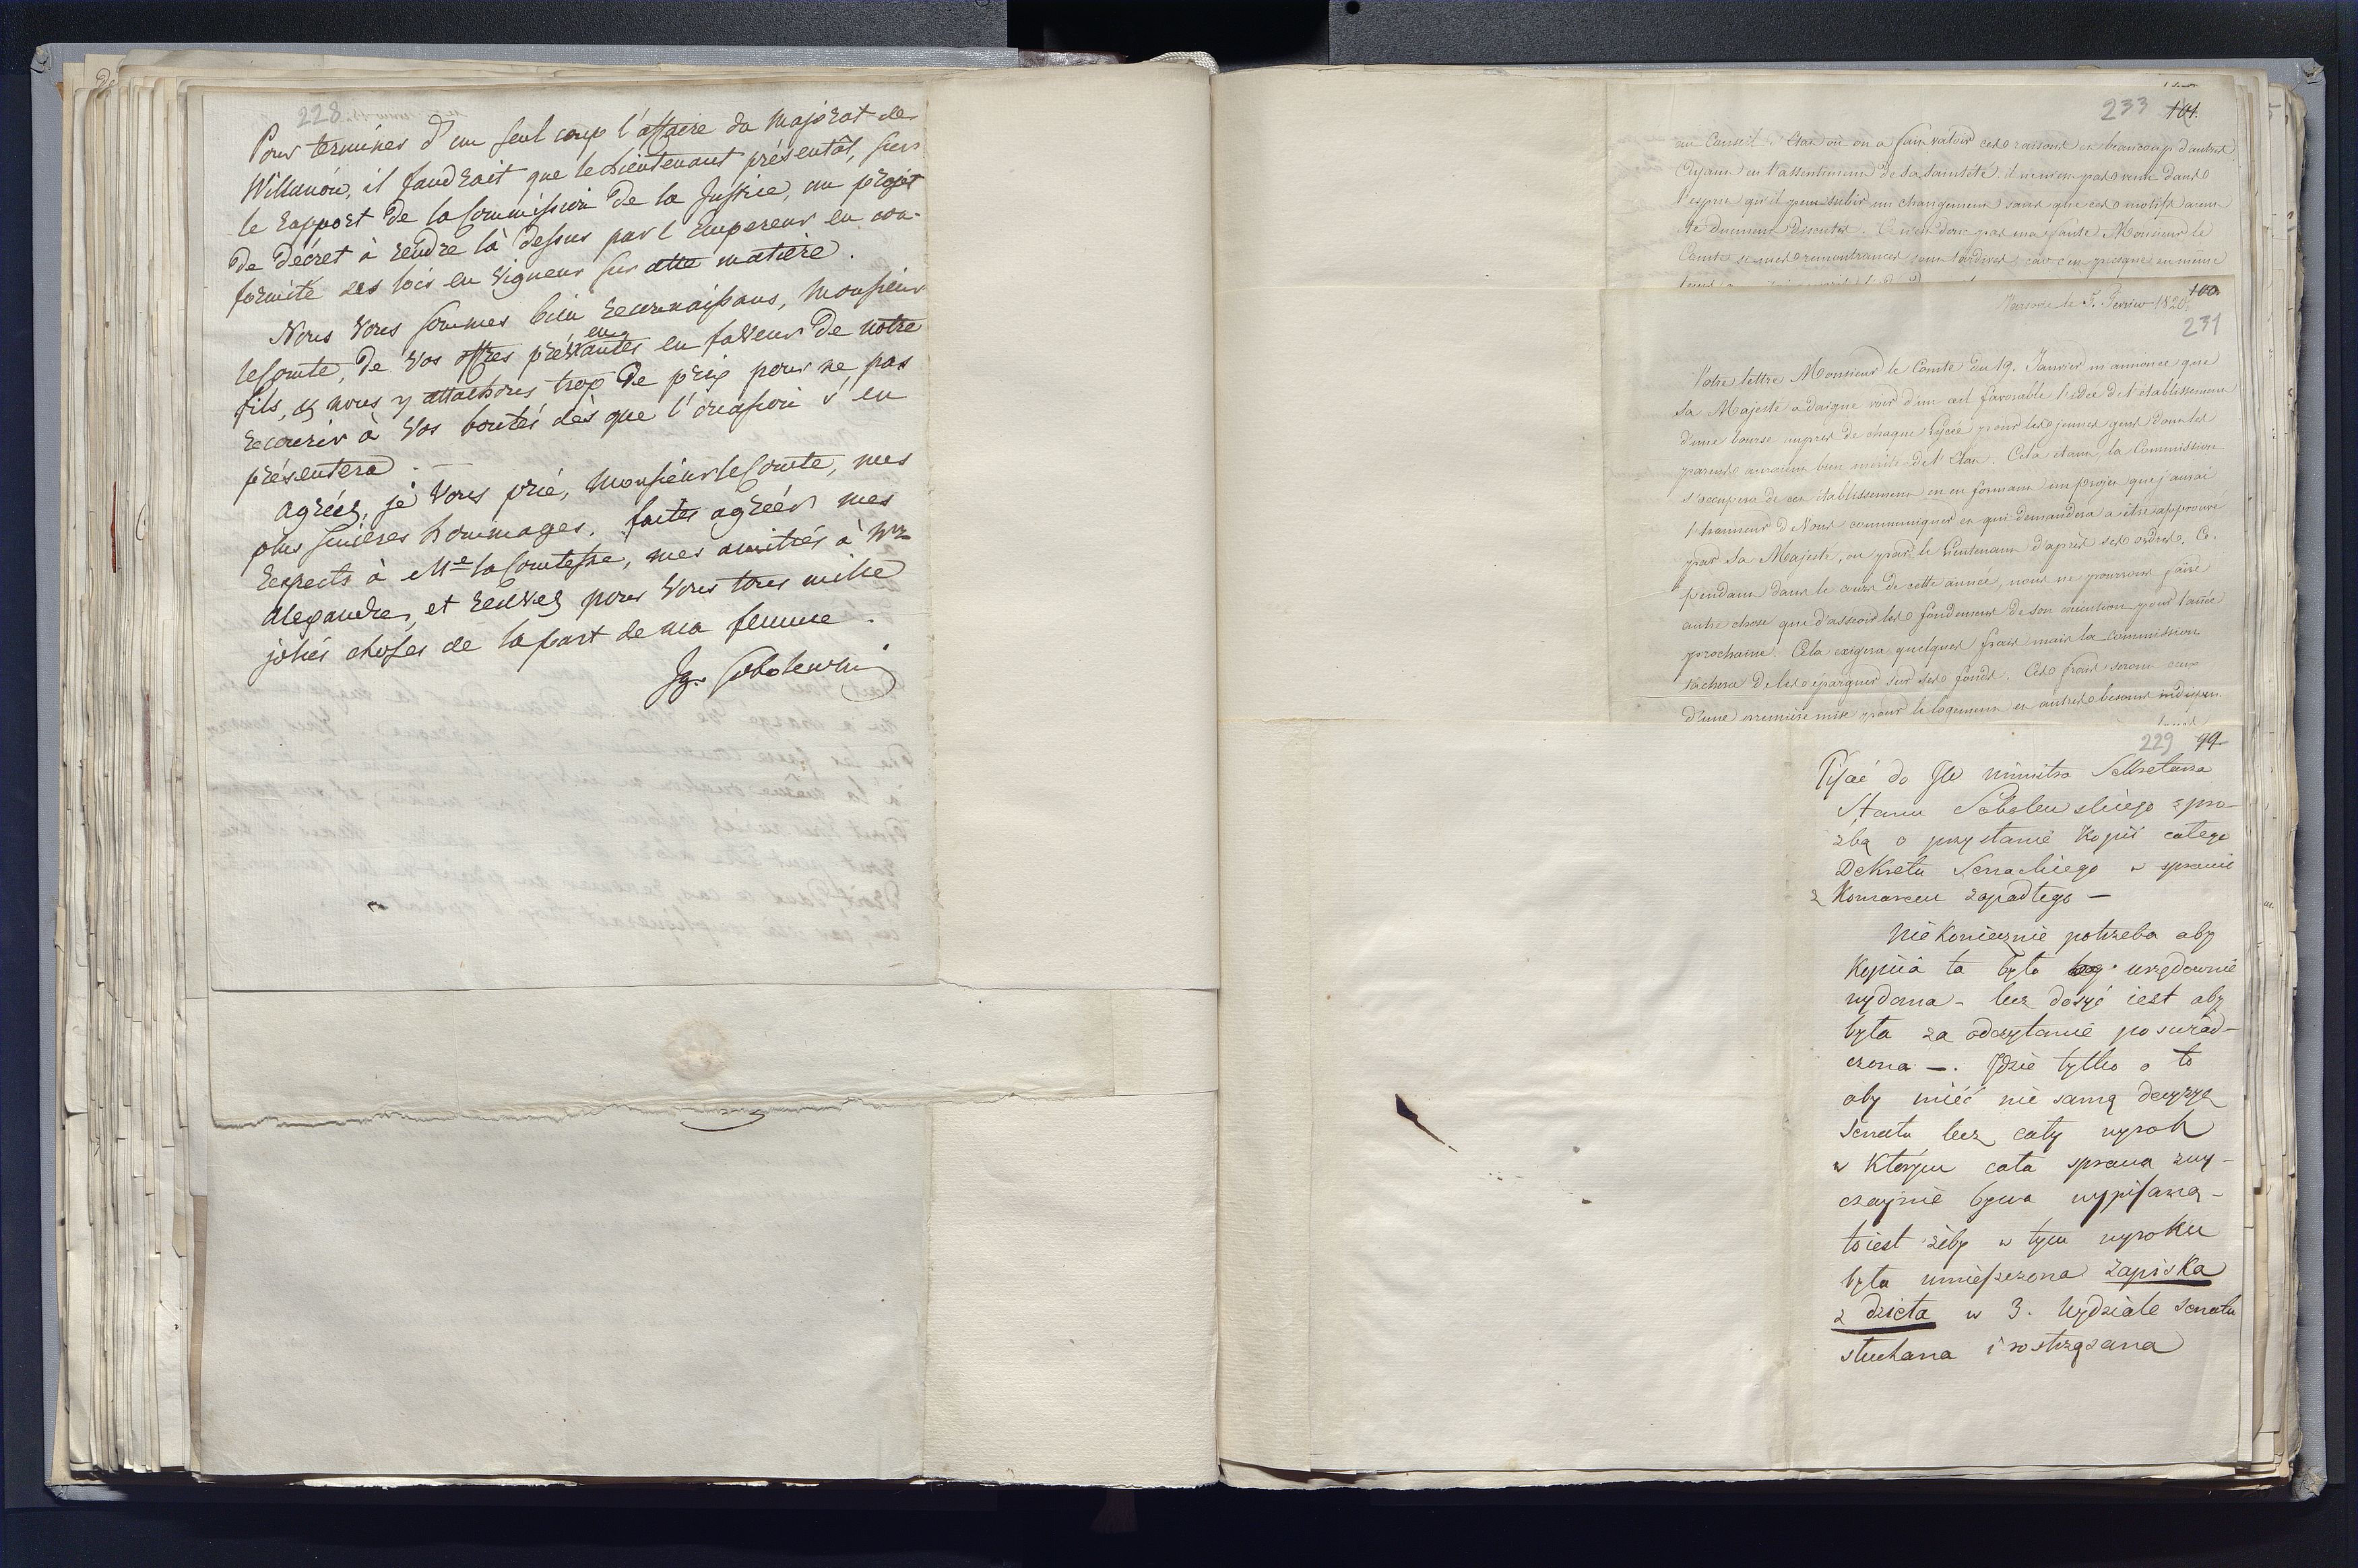 228
Pour terminer d'un seul coup l'affaire du Majorat de
Willanów, il faudrait que le Lieutenant présentât, sur
le rapport de la Commission de la Justice, un projet
de décret à rendre là dessus par l'Empereur en con-
formité des lois en vigueur sur cette matière.
Nous Vous sommes bien reconnaissans, Monsieur
le Comte, de Vos offres prévenantes en faveur de notre
fils, et nous y attachons trop de prix pour ne pas
recourir à Vos bontés dès que l'occasion s'en
présentera.
Agréez, je Vous prie, Monsieur le Comte, mes
plus sincères hommages, faites agréer mes
respects à Me la Comtesse, mes amitiés à Mr
Alexandre, et recevez pour Vous tous mille
jolies choses de la part de ma femme.
Ig. Sobolewski
233 101.
au Conseil d'Etat où on a fait valoir ces raisons et beaucoup d'autres
Ayant eu l'assentiment de Sa Sainteté il n'est pas venu dans
l'esprit qu'il peut subir un changement sans que ces motifs aient
été dument discutés. Ce n'est donc pas ma faute Monsieur le
Comte si mes remontrances sont tardives car c'est presque en même
100
Varsovie le 5. Fevrier 1820.
231
Votre lettre Monsieur le Comte du 19. Janvier m'annonce que
Sa Majesté a daigné voir d'un œil favorable l'idée de l'établissement
d'une bourse auprès de chaque Lycée pour les jeunes gens dont les
parents auraient bien mérité de l'Etat. Cela étant la Commission
s'occupera de cet établissement en en formant un projet que j'aurai
l'honneur de Vous communiquer et qui demandera a être approuvé
par Sa Majesté, ou par le Lieutenant d'après ses ordres. Ce-
pendant dans le cours de cette année, nous ne pourrons faire
autre chose que d'asseoir les fondemens de son exécution pour l'année
prochaine. Cela exigera quelques frais mais la Commission
tâchera de les épargner sur ses fonds. Ces frais seront ceux
d'une première mise pour le logement et autres besoins indispen-
229 99.
Pisać do JW Ministra Sekretarza
Stanu Sobolewskiego z pro-
zbą o przysłanie Kopii całego
Dekretu Senackiego w sprawie
z Komarem zapadłego —
Nie koniecznie potrzeba aby
Kopiia ta była urzędownie
wydana - lecz dosyć iest aby
była za odczytanie poswiad-
czona —. Idzie tylko o to
aby mieć nie samą decyzyą
Senatu lecz cały wyrok
w którym cała sprawa zwy-
czaynie bywa wypisaną -
to iest żeby w tym wyroku
była umieszczona Zapiska
z dzieła w 3. Wydziale Senatu
słuchana i rostrząsana